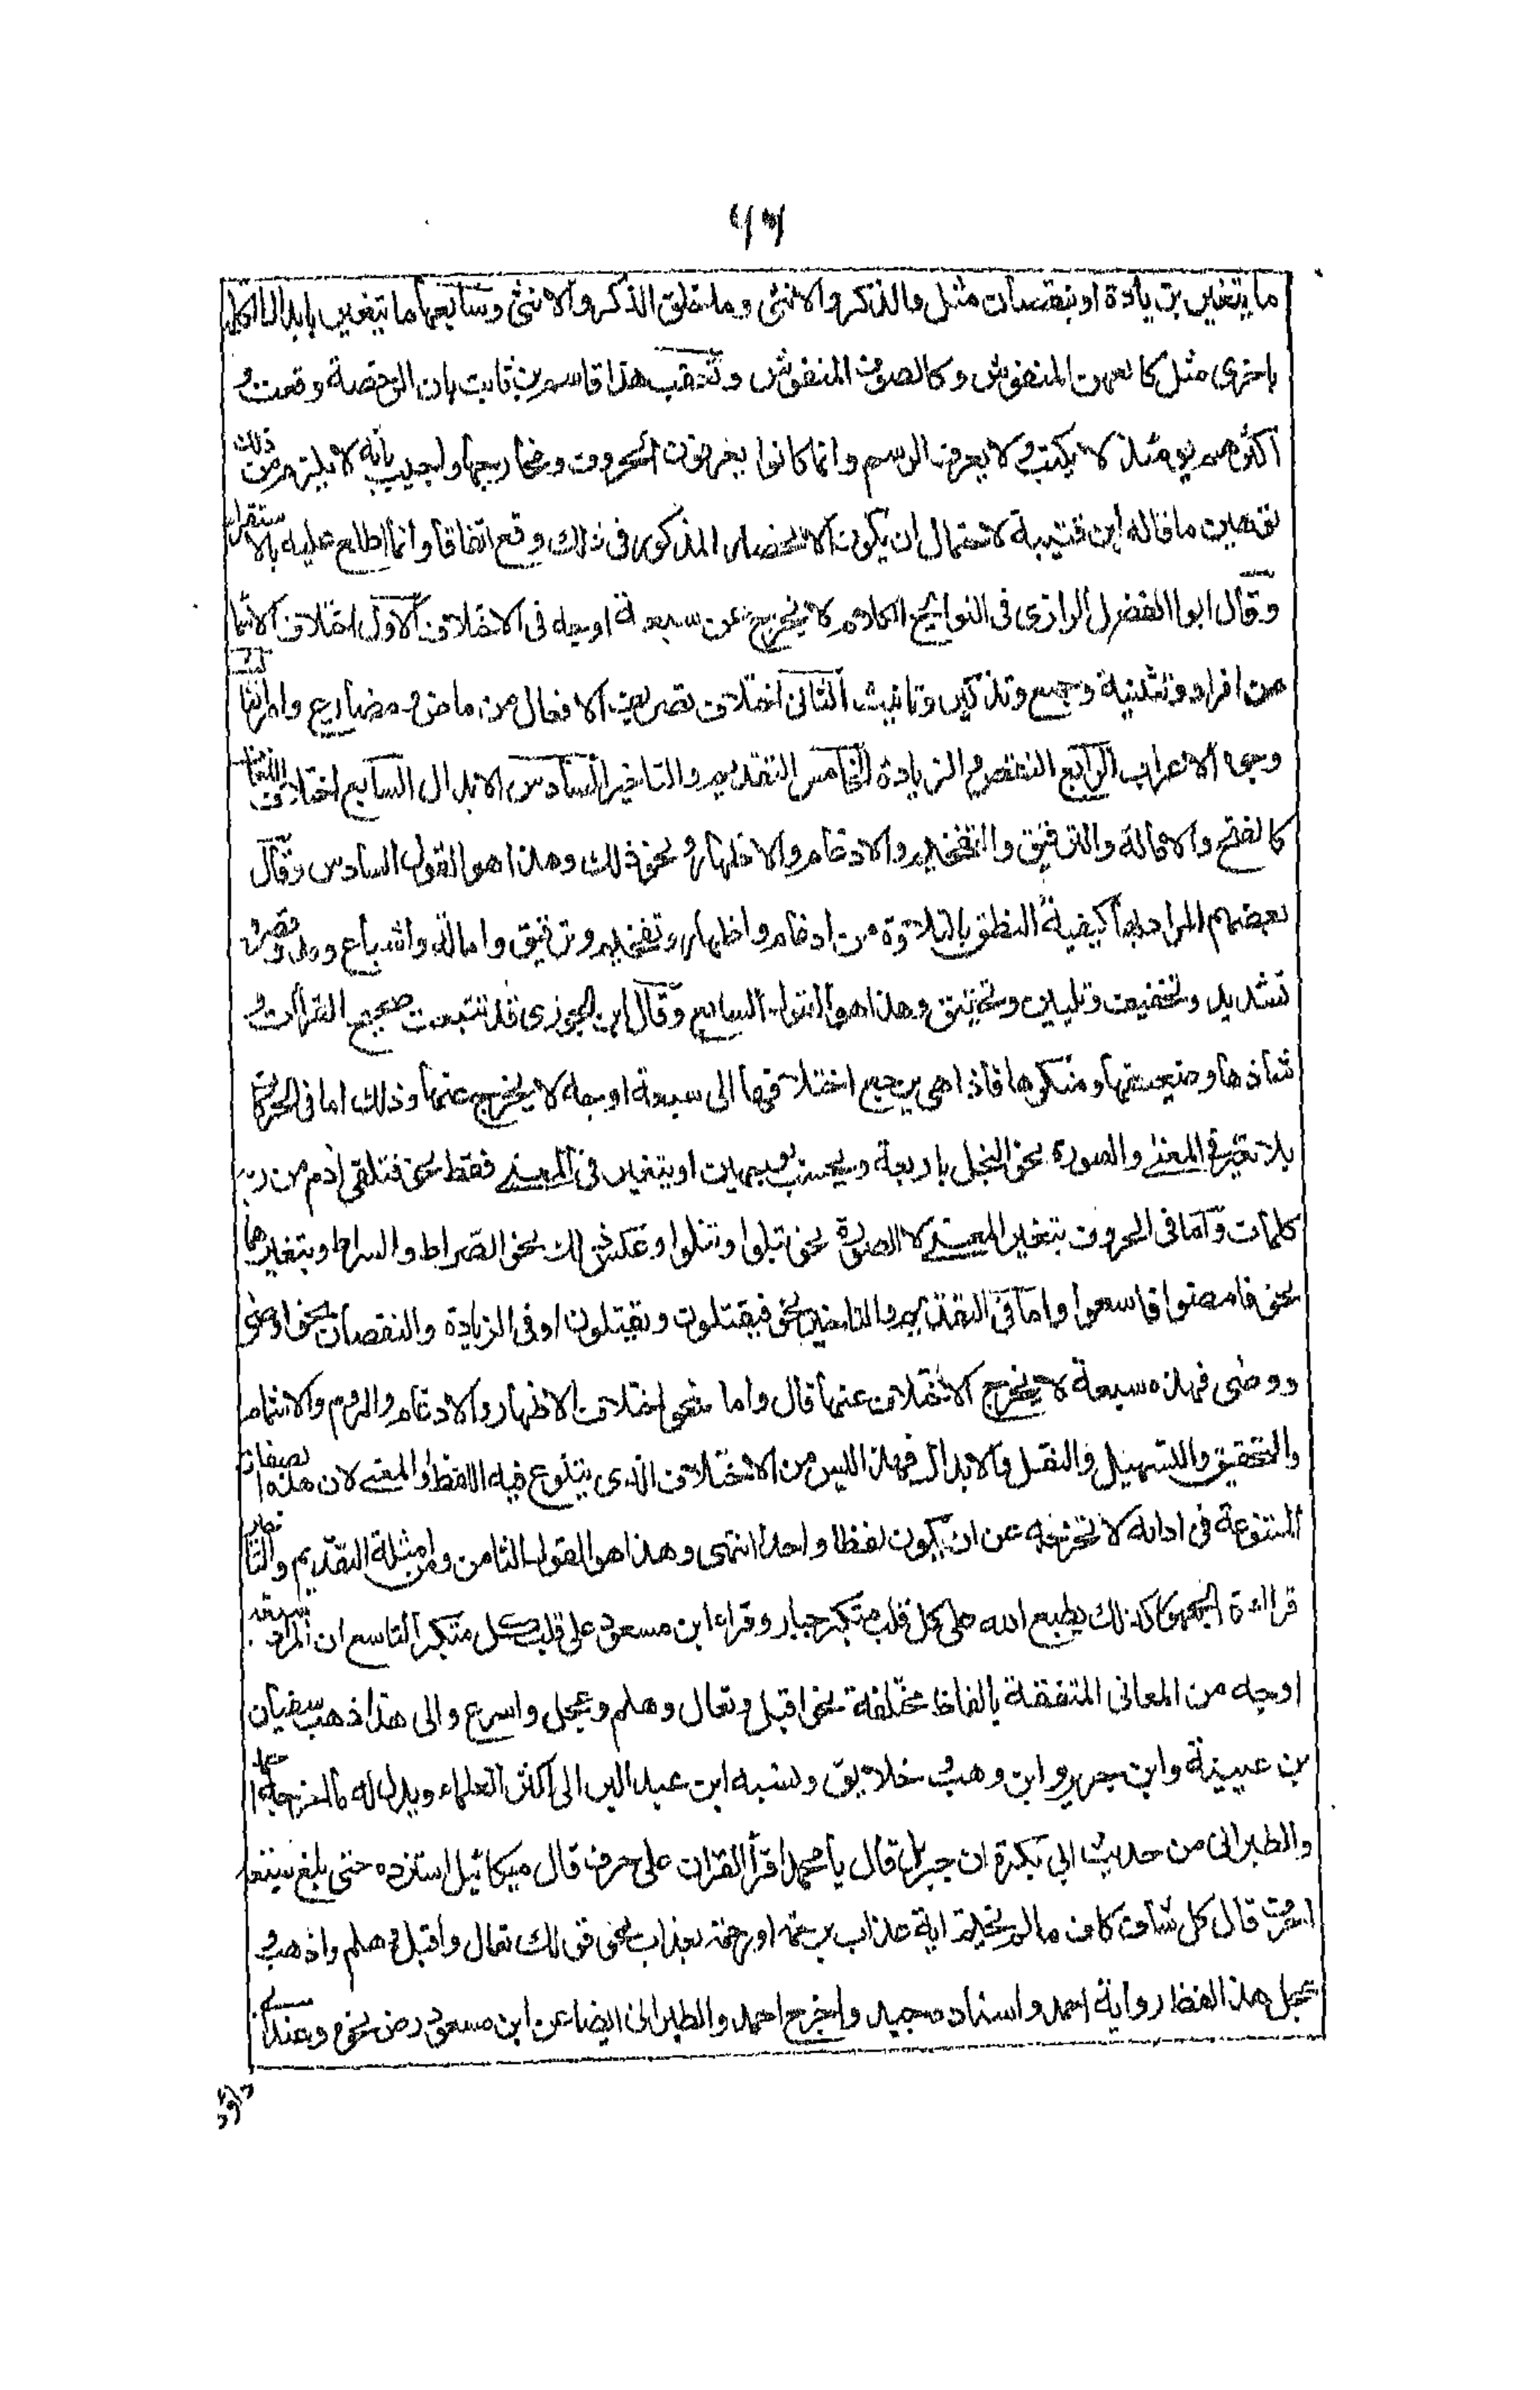 ما يتغير بزيادة او بنقصان مثل والذكر والانثى وما خلق الذكر والانثى وسابعها ما يتغير بابدال كلمة
باخرى مثل كالعهن المنفوش وكالصوف المنفوش وتعقب هذا قاسم بن ثابت بان الرخصة وقعت و
اكثرهم يومئذ لا يكتب ولا يعرف الرسم وانما كانوا يعرفون الحروف ومخارجها واجيب بانه لا يلزم من ذلك
توهين ما قاله ابن قتيبة لاحتمال ان يكون الانحصار المذكور في ذلك وقع اتفاقا وانما اطلع عليه بالاستقراء
وقال ابوا الفضل الرازي في اللوايح الكلام لا يخرج عن سبعة اوجه في الاختلاف الاول اختلاف الاسما
من افراد وتثنية وجمع وتذكير وتانيث الثاني اختلاف تصريف الافعال من ماض ومضارع وامر الثالث
وجوه الاعراب الرابع النقص والزيادة الخامس التقديم والتاخير السادس الابدال السابع اختلاف اللغات
كالفتح والامالة والترقيق والتفخيم والادغام والاظهار ونحو ذلك وهذا هو القول السادس وقال
بعضهم المراد بها كيفية النطق بالتلاوة من ادغام واظهار وتفخيم وترقيق وامالة واشباع ومد وقصر و
تشديد وتخفيف وتليين وتحقيق وهذا هو القول السابع وقال ابن الجوزي قد تتبعت صحيح القراات و
شاذها وضعيفها ومنكرها فاذا هي يرجع اختلافها الى سبعة اوجه لا يخرج عنها وذلك اما في الحركات
بلا تغير في المعنى والصورة نحو البخل باربعة ويحسب بوجهين او بتغير في المعنى فقط نحو فتلقى ادم من ربه
كلمات واما في الحروف بتغير المعنى لا الصورة نحو تبلوا وتتلوا وعكس ذلك نحو الصراط والسراط وبتغيرهما
نحو فامضوا فاسعوا واما في التقديم والتاخير نحو فيقتلون ويقتلون او في الزيادة والنقصان نحو اوصى
ووصى فهذه سبعة لا يخرج الاختلاف عنها قال واما نحو اختلاف الاظهار والادغام والروم والاشمام
والتحقيق والتسهيل والنقل والابدال فهذا ليس من الاختلاف الذي يتنوع فيه اللفظ او المعنى لان هذه الصفات
المتنوعة في ادائه لا تخرجه عن ان يكون لفظا واحدا انتهى وهذا هو القول الثامن ومن امثلة التقديم والتاخير
قراءة الجمهور كذلك يطبع الله على كل قلب متكبر جبار وقراءة ابن مسعود على قلب كل متكبر التاسع ان المراد سبعة
اوجه من المعاني المتفقة بالفاظ مختلفة نحو اقبل وتعال وهلم وعجل واسرع والى هذا ذهب سفيان
بن عيينة وابن جرير وابن وهب و خلايق ونسبه ابن عبد البر الى اكثر العلماء ويدل له ما اخرجه احمد
والطبراني من حديث ابي بكرة ان جبريل قال يا محمد اقرأ القران على حرف قال ميكائيل استزده حتى بلغ سبعة
احرف قال كل شاف كاف ما لم تختم اية عذاب برحمة او رحمة بعذاب نحو قولك تعال واقبل و هلم واذهب و
عجل هذا اللفظ رواية احمد واسناده جيد واخرج احمد والطبراني ايضا عن ابن مسعود رض نحوه وعند ابي
داود